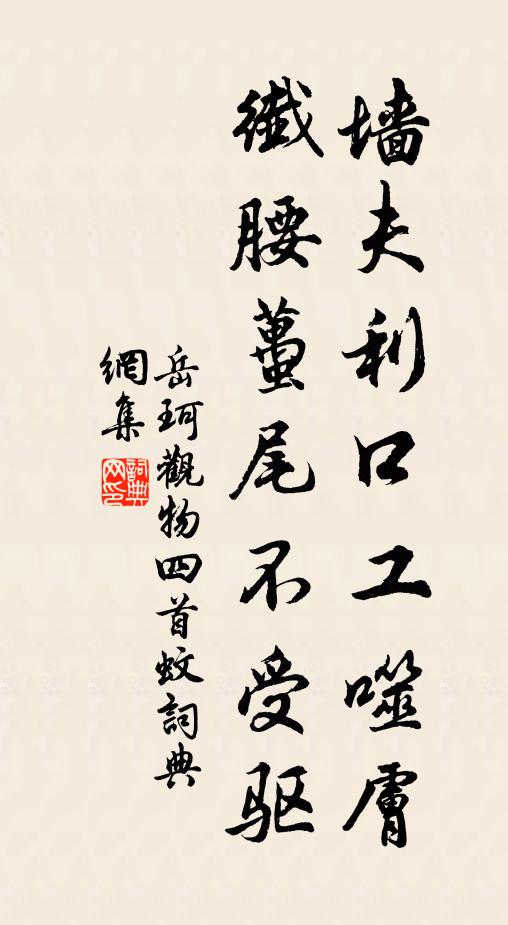 墙夫利口工噬膚
纖腰蠆尾不受驱
岳珂觀物四首蚊詞典
網集
詞典網印